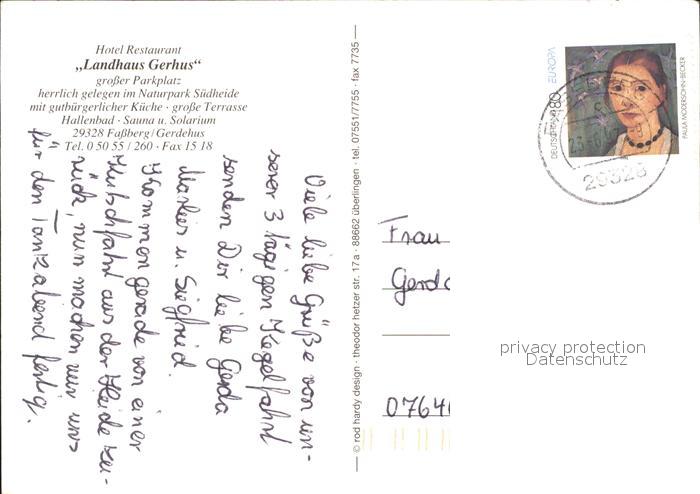 Hotel Restaurant
„Landhaus Gerhus“
großer Parkplatz
herrlich gelegen im Naturpark Südheide
mit gutbürgerlicher Küche · große Terrasse
Hallenbad · Sauna u. Solarium
29328 Faßberg/Gerdehus
Tel. 0 50 55 / 260 · Fax 15 18
Viele liebe Grüße von un-
serer 3 tägigen Kegelfahrt
senden Dir liebe Gerda
Marlies u. Siegfried.
Kommen gerade von einer
Kutschfahrt aus der Heide zu-
rück, nun machen wir uns
für den Tanzabend fertig.
© rod hardy design · theodor hetzer str. 17a · 88662 überlingen · tel. 07551/7755 · fax 7735
DEUTSCHLAND 80 EUROPA
PAULA MODERSOHN-BECKER
29328
Frau
Gerda
0764
privacy protection
Datenschutz